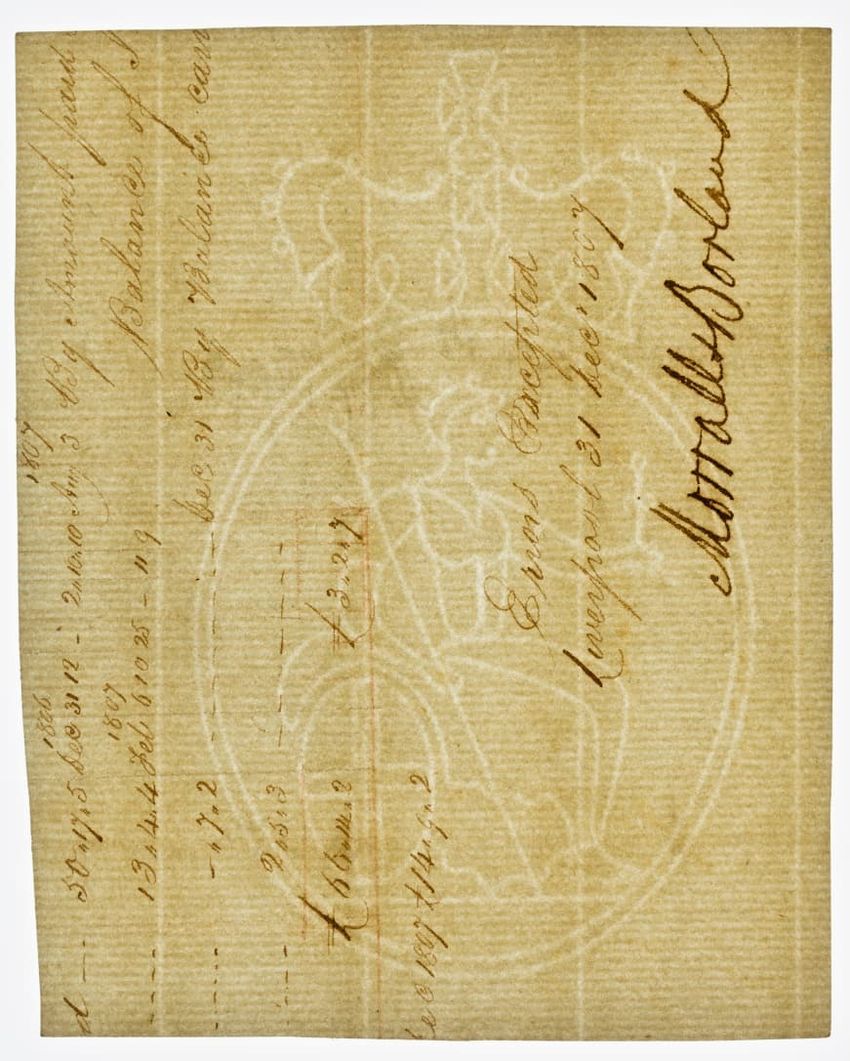 1806 1807
d 50„17„5 Dec 31 12 - 2„10„10 Aug 3 By Amount paid
1807
13„4„4 Feb 6 10 25 - 11 9 Balance of
-„7„2 Dec 31 By Balance carr
2„5„3
£66„14„2 £3„2„7
ec 1807 £14„9„2
Errors Excepted
Liverpool 31 Dec' 1807
Morrall & Borland